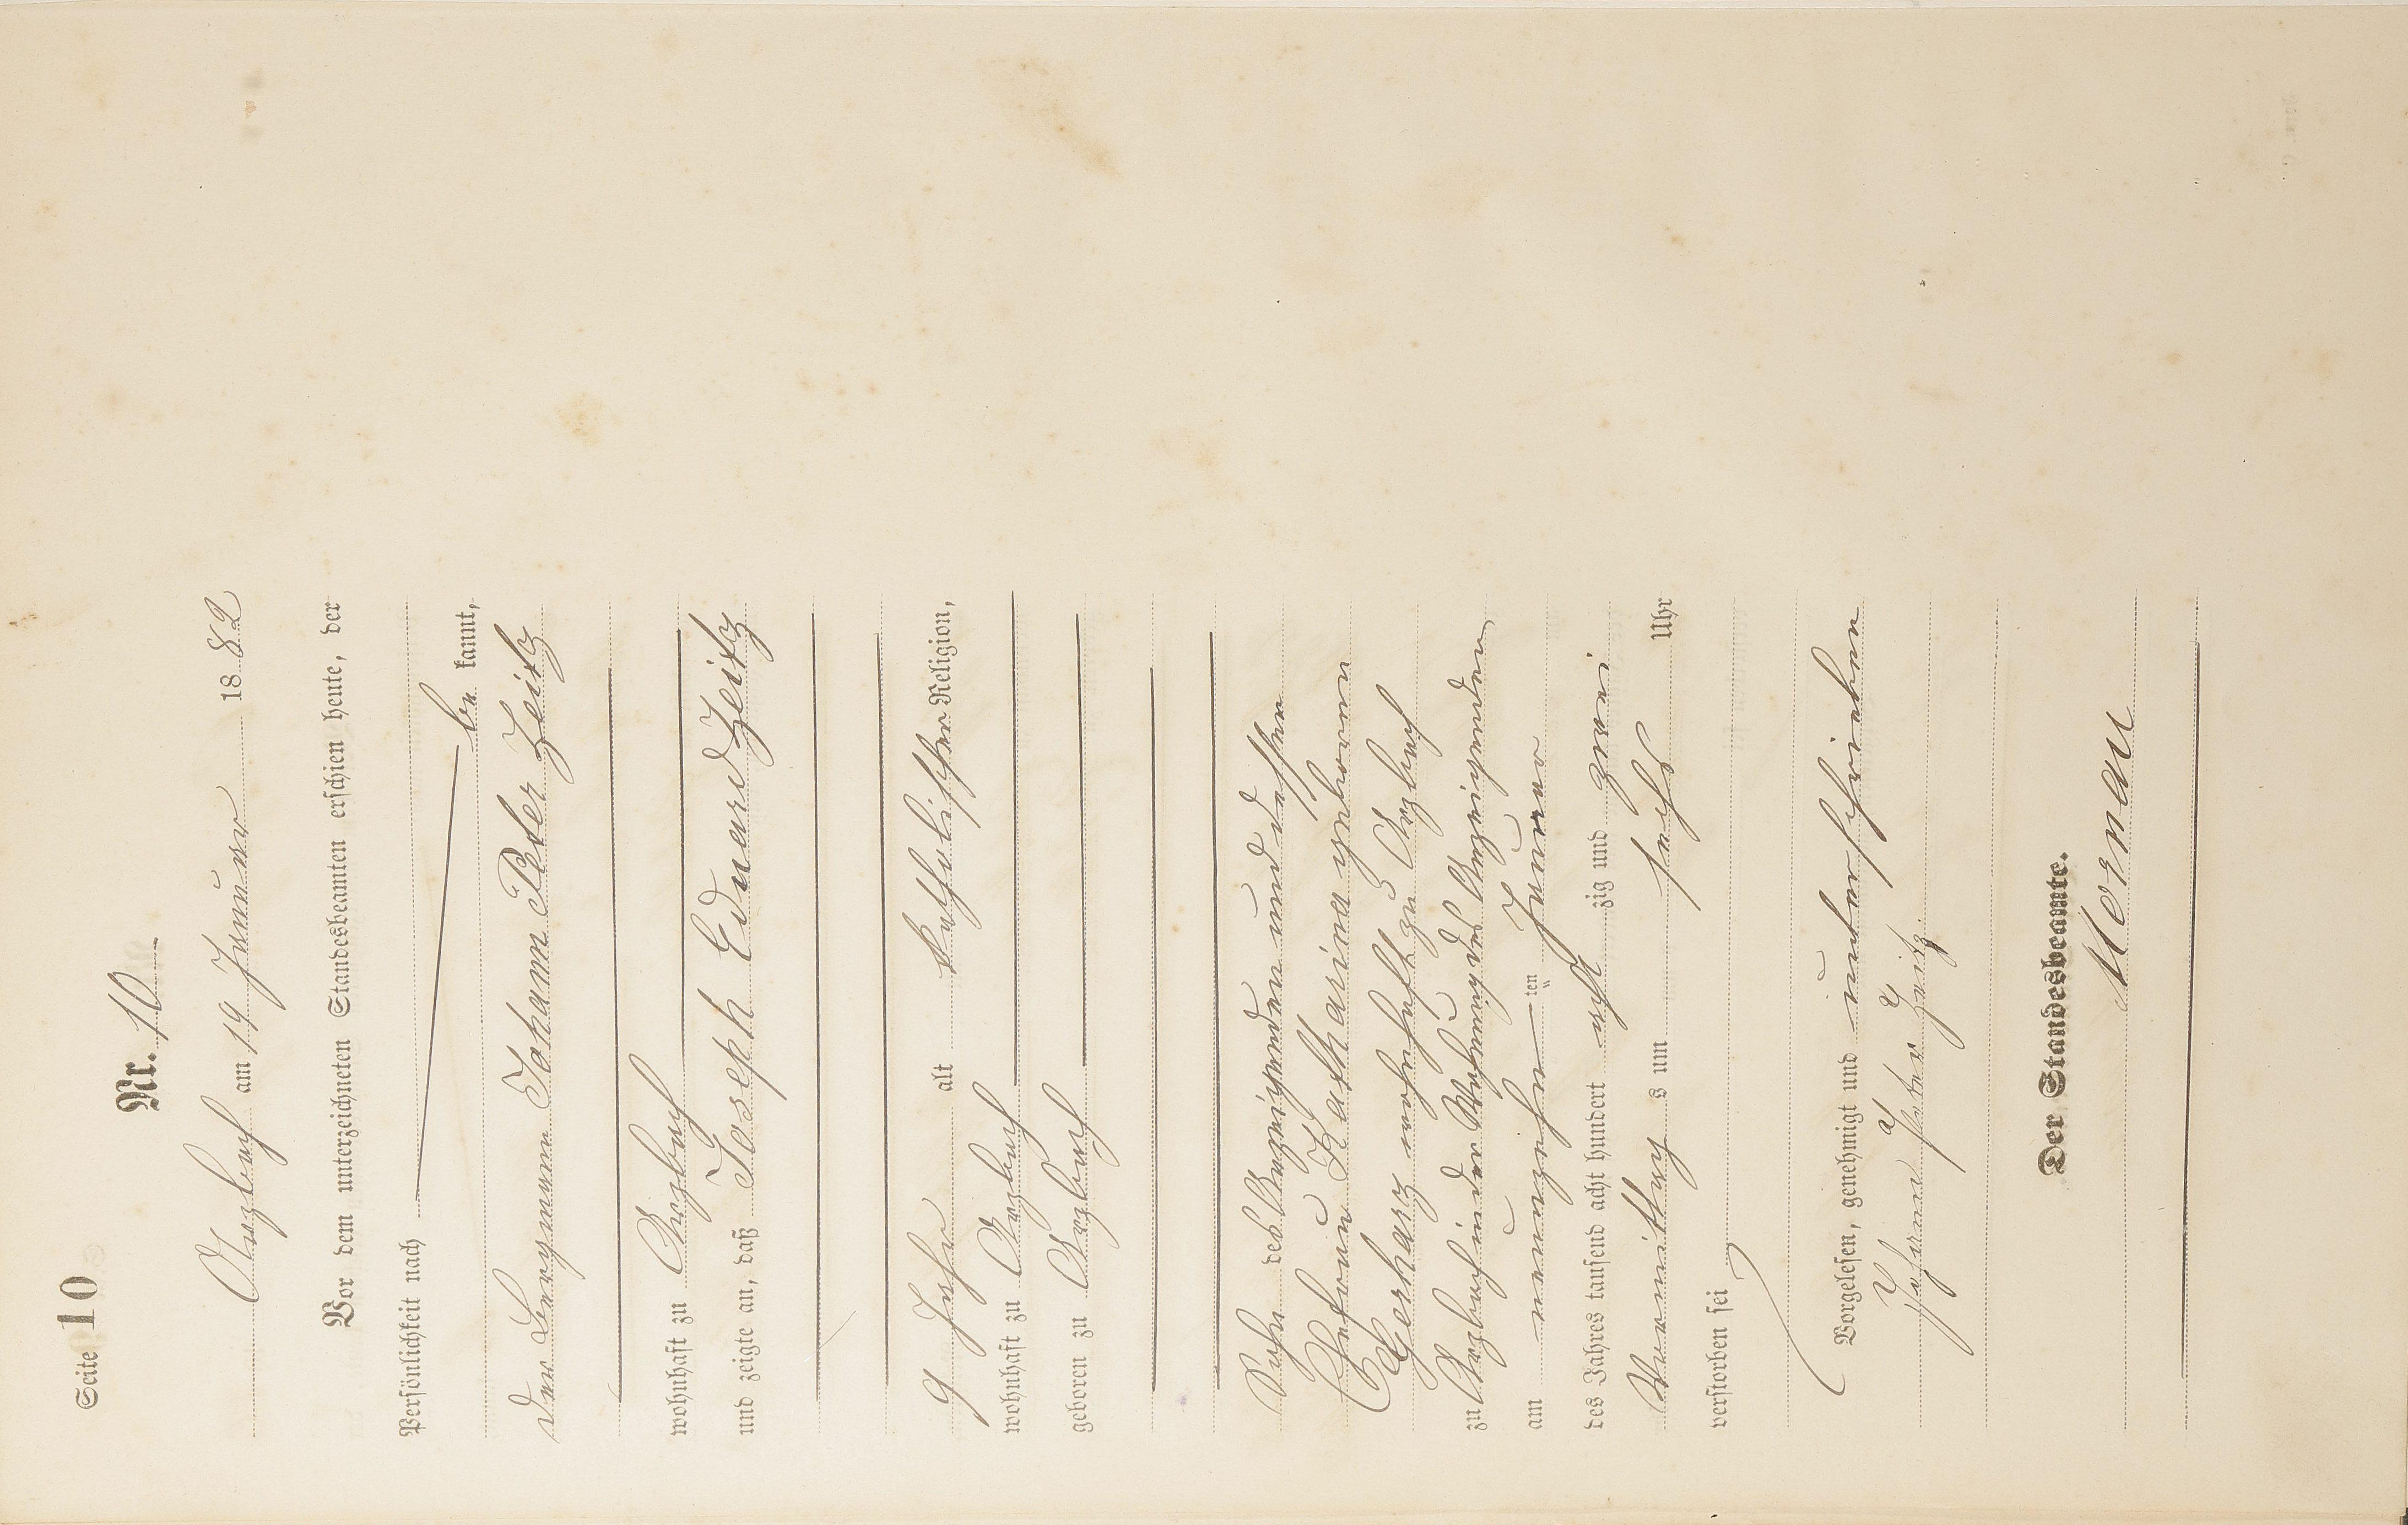 Seite 10
Nr. 10
Arzbach am 19 Januar 1882
Vor dem unterzeichneten Standesbeamten erschien heute, der
Persönlichkeit nach
be kannt,
der Bergmann Johann Peter Zeitz
wohnhaft zu Arzbach
und zeigte an, daß Joseph Eduard Zeitz
9 Jahr alt katholischer Religion,
wohnhaft zu Arzbach
geboren zu Arzbach
Sohn des Anzeigenden und dessen
Ehefrau Katharina geborenen
Gerharz wohnhaft zu Arzbach
zu Arzbach in der Wohnung des Anzeigenden
am neunzehnten Januar
des Jahres tausend acht hundert acht zig und zwei
Vormittags um sechs Uhr
verstorben sei
Vorgelesen, genehmigt und unterschrieben
Johann Peter Zeitz
Der Standesbeamte.